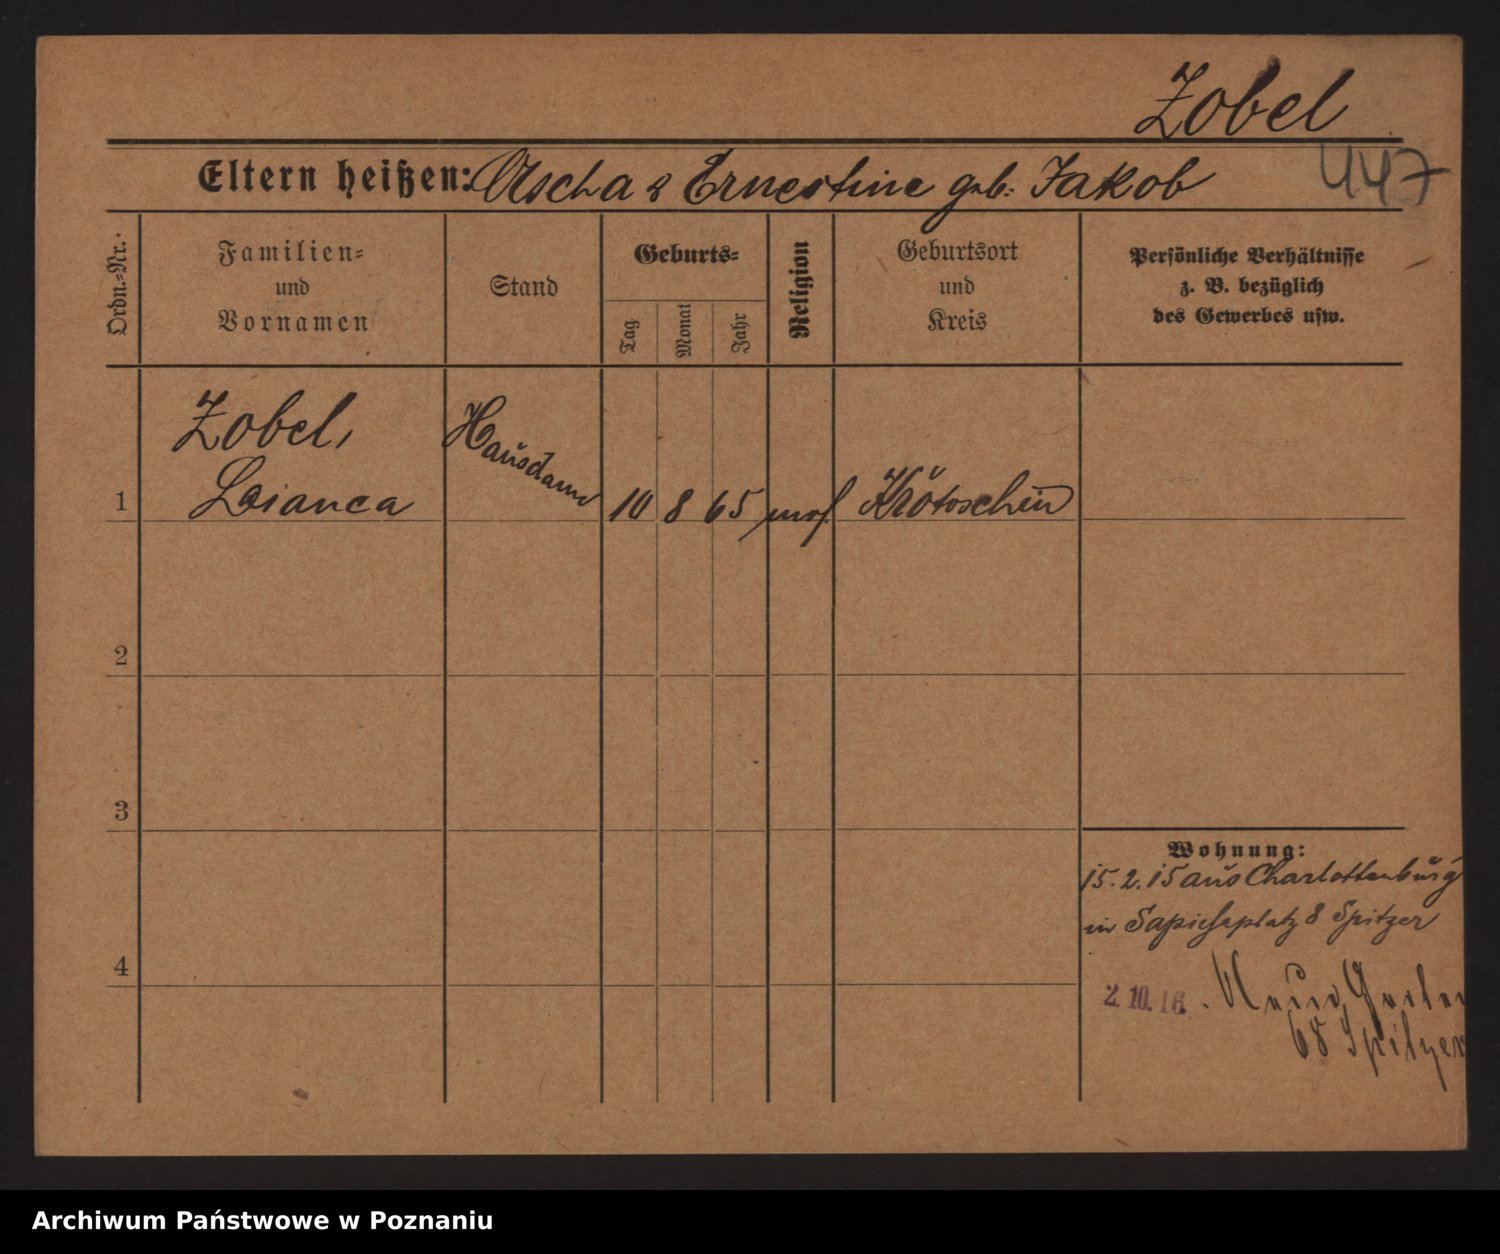 Zobel
447
Eltern heißen: Ascha & Ernestine geb. Jakob
Ordn.-Nr.
Familien-
und
Vornamen
Stand
Geburts-
Tag
Monat
Jahr
Religion
Geburtsort
und
Kreis
Persönliche Verhältnisse
z. B. bezüglich
des Gewerbes usw.
1
Zobel,
Bianca
Hausdame
10 8 65 mos Krotoschin
2
3
4
Wohnung:
15.2.15 aus Charlottenburg
in Sapiehaplatz 8 Spitzer
2.10.16. Neue Garten
68 Spitzer
Archiwum Państwowe w Poznaniu